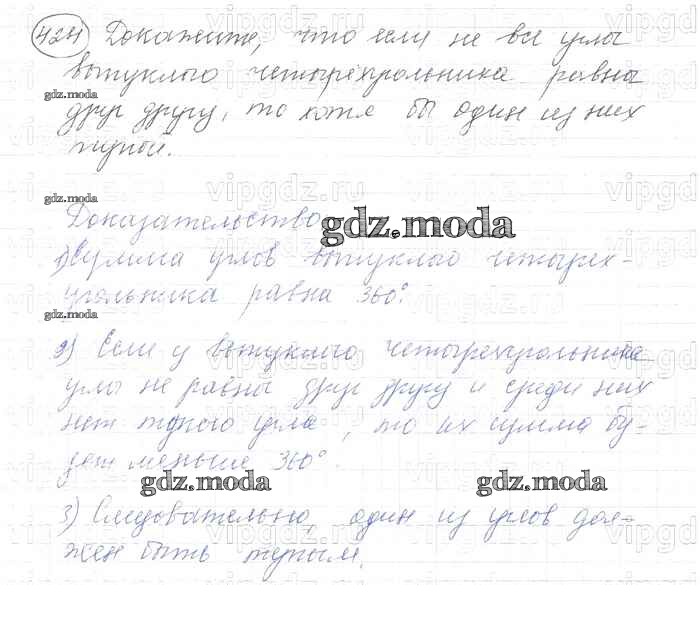 424 Докажите, что если не все углы
выпуклого четырёхугольника равны
gdz.moda
друг другу, то хотя бы один из них
тупой.
gdz.moda
Доказательство
gdz.moda
1) Сумма углов выпуклого четырёх-
угольника равна 360°.
gdz.moda
2) Если у выпуклого четырехугольника
углы не равны друг другу и среди них
нет тупого угла, то их сумма бу-
дет меньше 360°.
gdz.moda gdz.moda
3) Следовательно, один из углов дол-
жен быть тупым.